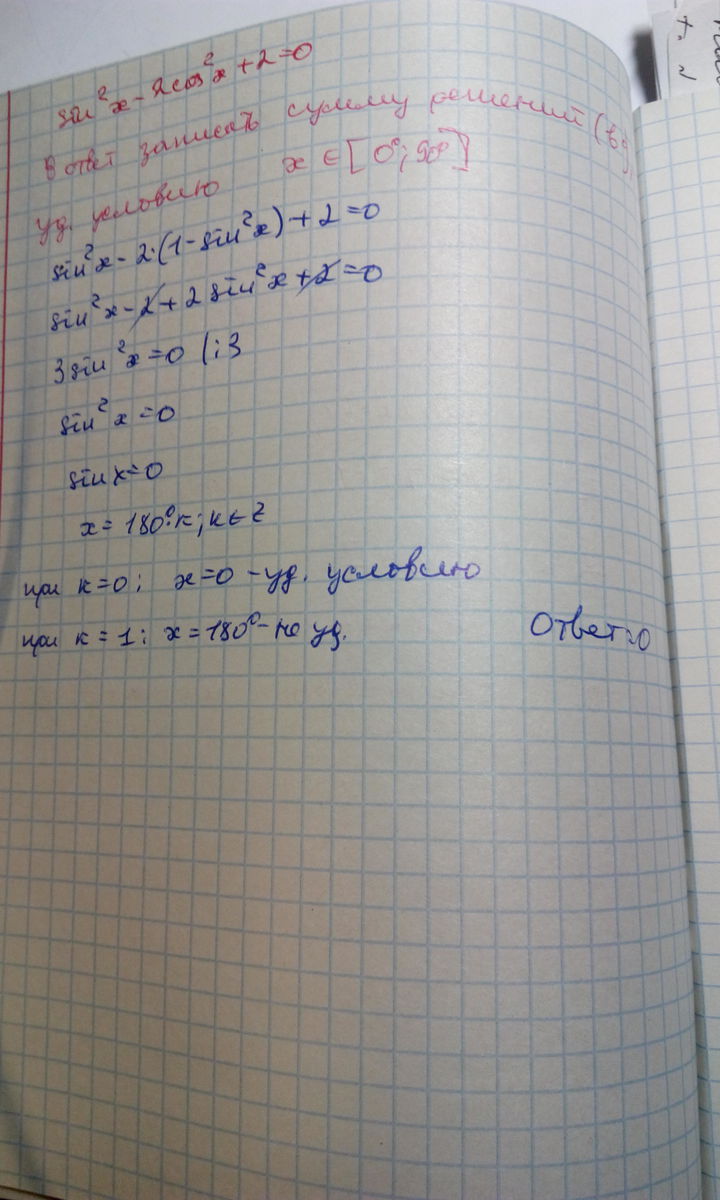 sin²x - 2cos²x + 2 = 0
В ответ записать сумму решений (в g
уд. условию x ∈ [0°; 90°]
sin²x - 2·(1 - sin²x) + 2 = 0
sin²x - 2 + 2 sin²x + 2 = 0
3sin²x = 0 |:3
sin²x = 0
sin x = 0
x = 180°·k; k ∈ Z
при k = 0; x = 0 - уд. условию
при k = 1: x = 180° - не уд.
Ответ: 0